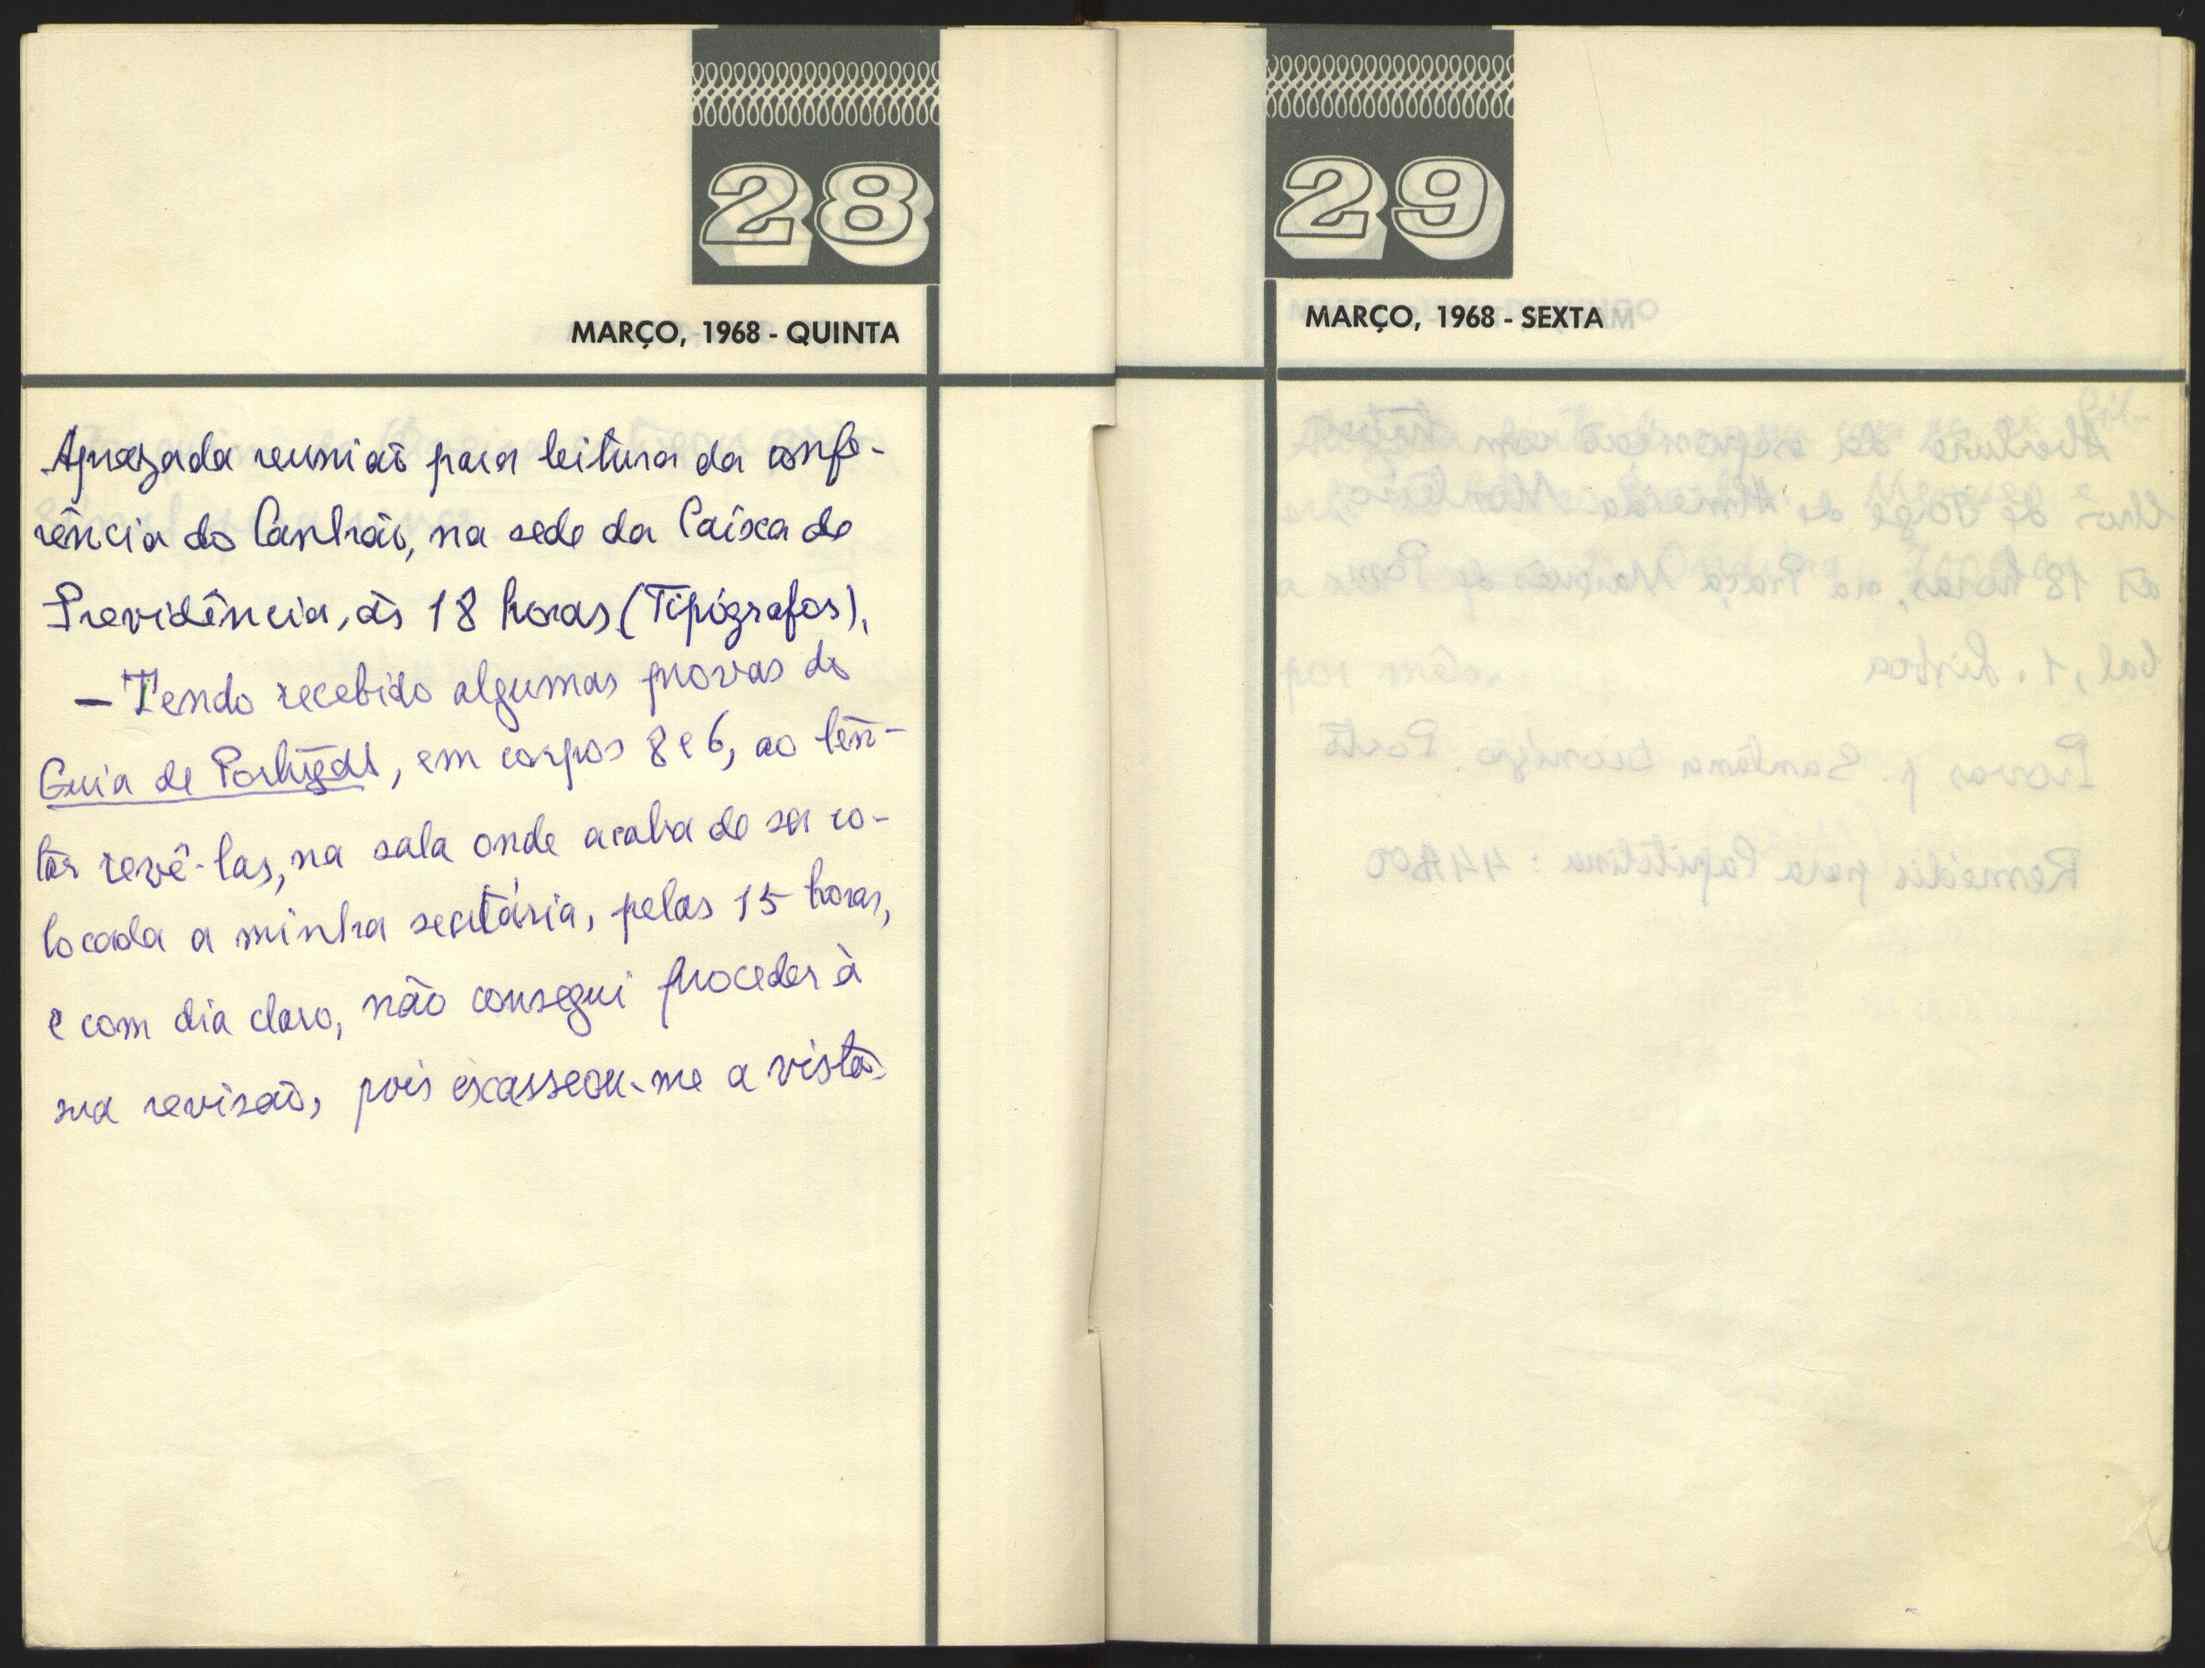 28
MARÇO, 1968 - QUINTA
Aprazada reunião para leitura da confe-
rência do Canhão, na sede da Caixa de
Previdência, às 18 horas (Tipógrafos).
— Tendo recebido algumas provas do
Guia de Portugal, em corpos 8 e 6, ao ten-
tar revê-las, na sala onde acaba de ser co-
locada a minha secretária, pelas 15 horas,
e com dia claro, não consegui proceder à
sua revisão, pois escasseou-me a vista.
29
MARÇO, 1968 - SEXTA